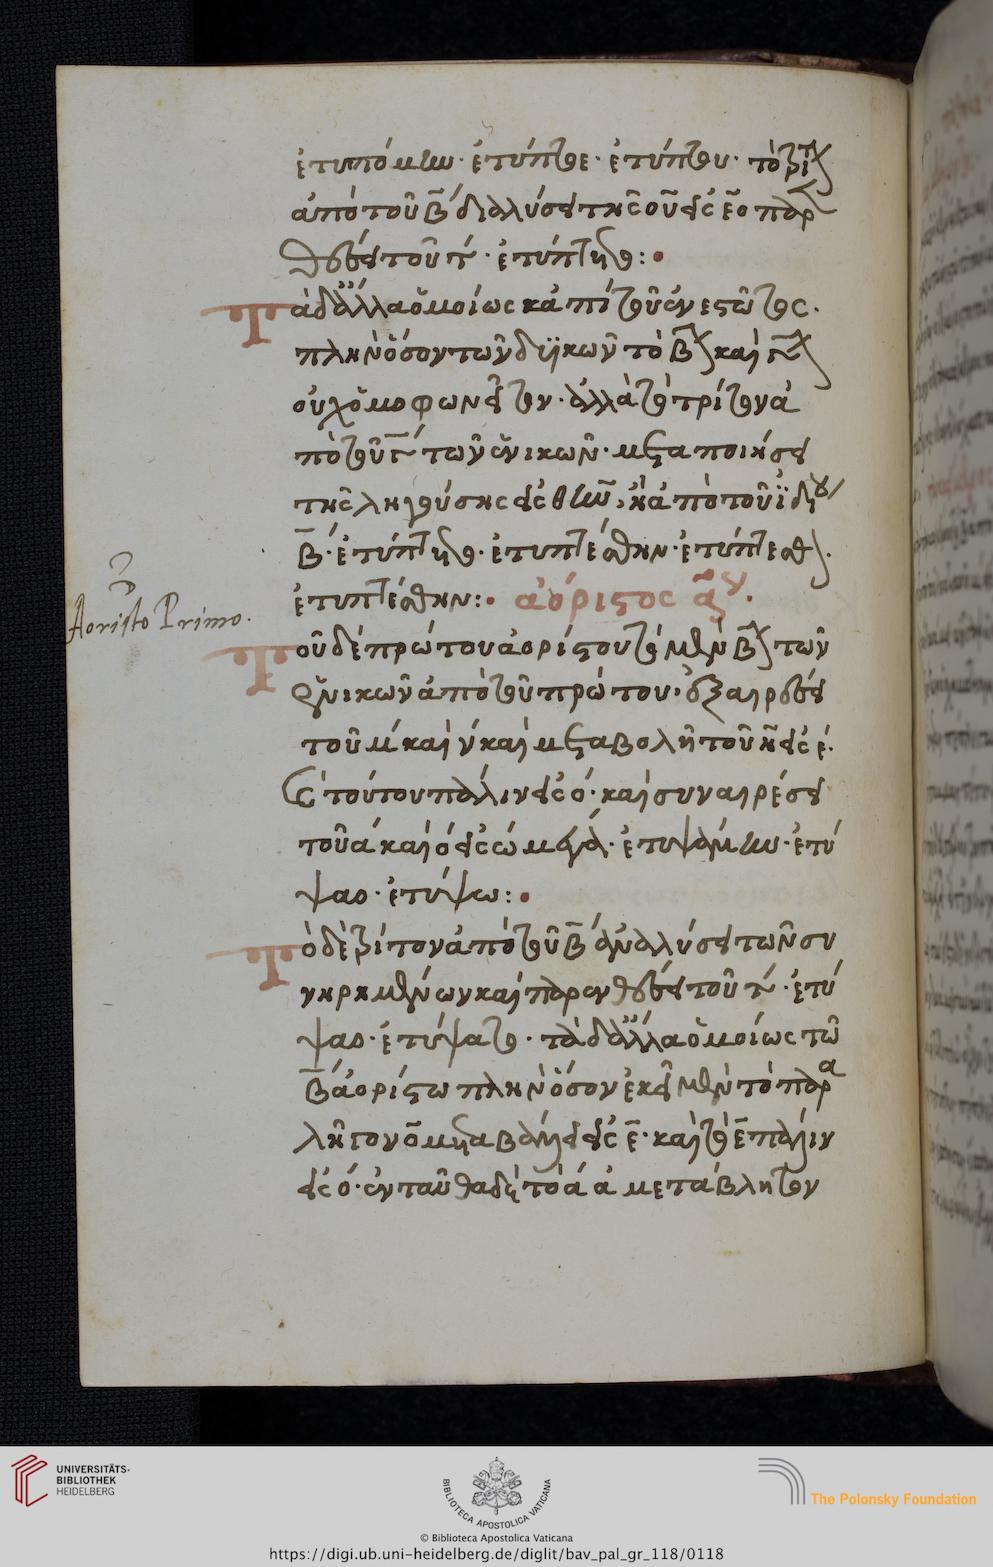 ἐτυπόμην· ἐτύπτεο· ἐτύπτου· τὸ τρίτ
ἀπὸ τοῦ β διαλύσει τῆς οῦ εἰς εο παρ
θέσει τοῦ τ · ἐτύπτετο:
Τὰ δ' ἄλλα ὁμοίως κἀπὶ τοῦ ἐνεστῶτος·
πλὴν ὅσον τῶν δυϊκῶν τὸ β καὶ γ
οὐχ ὁμοφωνεῖτον· ἀλλὰ τὸ τρίτον ἀ
πὸ τοῦ γ τῶν ἑνικῶν· μεταποιήσει
τῆς ληγούσης εἰς θην, ἢ ἀπὸ τοῦ ἰδίου
β· ἐτύπτετο· ἐτυπτέσθην· ἐτύπτεσθ·
ἐτυπτέσθην: ἀόριστος α μέσου.
Aoristo Primo.
Τοῦ δὲ πρώτου ἀορίστου τὸ μὲν β τῶν
ἑνικῶν ἀπὸ τοῦ πρώτου· ἐξαιρέσει
τοῦ μ καὶ ν καὶ μεταβολῇ τοῦ η εἰς ε·
ἐκ τούτου πάλιν εἰς ο· καὶ συναιρέσει
τοῦ α καὶ ο εἰς ω μέγα· ἐτυψάμην· ἐτύ
ψαο· ἐτύψω:
Τὸ δὲ τρίτον ἀπὸ τοῦ β ἀναλύσει τῶν συ
νῃρημένων καὶ παρενθέσει τοῦ τ · ἐτύ
ψαο· ἐτύψατο· τὰ δ' ἄλλα ὁμοίως τῶ
β ἀορίστω πλὴν ὅσον ἐκεῖ μὲν τὸ παρα
λῆγον ο μεταβάλλει εἰς ε· καὶ τὸ ε πάλιν
εἰς ο· ἐνταῦθα δὲ τὸ α ἀμετάβλητον
UNIVERSITÄTS-
BIBLIOTHEK
HEIDELBERG
BIBLIOTECA APOSTOLICA VATICANA
The Polonsky Foundation
© Biblioteca Apostolica Vaticana
https://digi.ub.uni-heidelberg.de/diglit/bav_pal_gr_118/0118